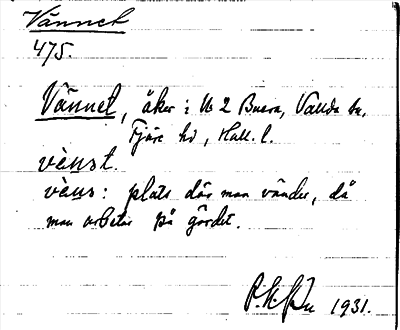 Vännet
475.
Vännet, åker i № 2 Buera, Vallda sn.
Fjäre hd, Hall. l.
vènst.
vèns: plats där man vänder, då
man arbetar på gärdet.
1931.